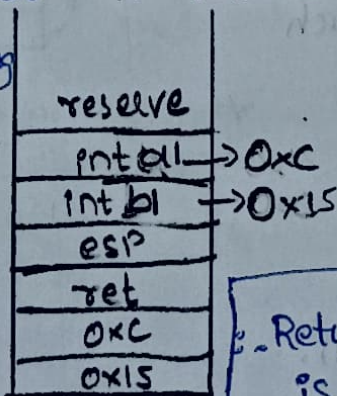 reserve
int a1 → 0xC
int b1 → 0x15
esp
ret
0xC
0x15
Retu
is